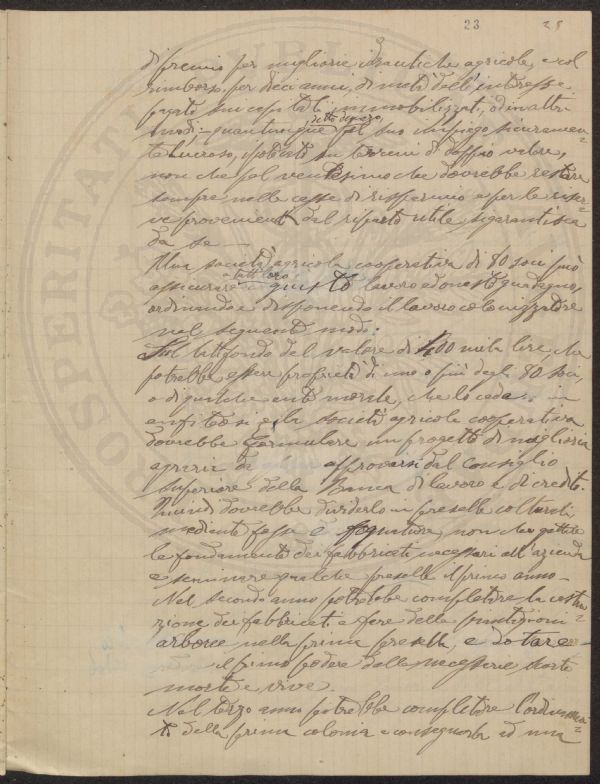 23 25
di premio per migliorie idrauliche agricole, e col
rimborso, per dieci anni, di metà dell'interesse
pagato sui capitali immobilizzati, od in altri
modi; quantunque pel suo impiego sicuramen=
detto denaro,
te lucroso, ipotecato su terreni di doppio valore,
non che pel ventesimo che dovrebbe restare
sempre nelle casse di risparmio e per le riser=
ve provenienti dal riparto utile, si garantisca
da se —
Una società agricola cooperativa di 80 soci può
assicurare a tutti loro giusto lavoro ed onesto guadagno,
ordinando e disponendo il lavoro colonizzatore
nel seguente modo:
Sul latifondo del valore di 400 mila lire, che
potrebbe essere proprietà di uno o più degli 80 soci,
o di qualche ente morale, che lo ceda in
enfiteusi alla società agricola cooperativa
dovrebbe formulare un progetto di miglioria
agraria da approvarsi dal Consiglio
Superiore della Banca di lavoro e di credito.
Quindi dovrebbe dividerlo in preselle colturali
mediante fosse e piantate, non che gettare
le fondamenta dei fabbricati necessari all'azienda
e seminare qualche presella il primo anno —
Nel secondo anno potrebbe completare la costru=
zione dei fabbricati e fare delle piantagioni
arboree nella prima presella, e dotare
il primo podere delle necessarie scorte
morte e vive.
Nel terzo anno potrebbe completare l'ordinamen=
to della prima colonia e consegnarla ad una